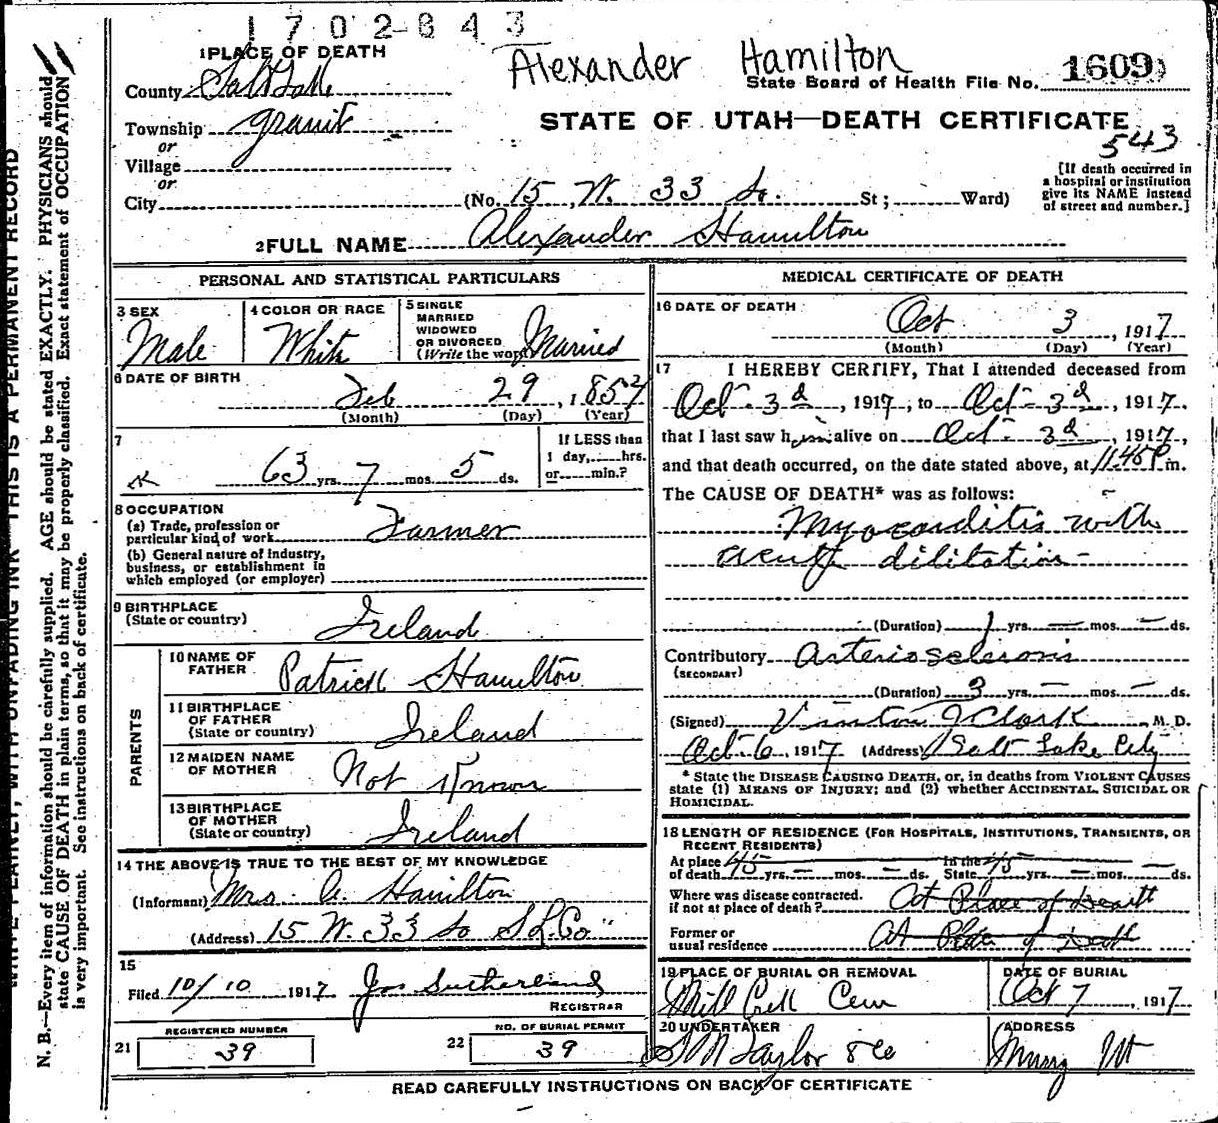 1702843
Alexander Hamilton
1 PLACE OF DEATH
State Board of Health File No. 1609
County Salt Lake
Township Granit
STATE OF UTAH—DEATH CERTIFICATE
543
or
Village
or
City (No. 15, W. 33 So. St; Ward)
[If death occurred in
a hospital or institution
give its NAME instead
of street and number.]
2 FULL NAME Alexander Hamilton
PERSONAL AND STATISTICAL PARTICULARS
3 SEX
Male
4 COLOR OR RACE
White
5 SINGLE
MARRIED
WIDOWED
OR DIVORCED
(Write the word) Married
6 DATE OF BIRTH
Feb 29, 185
(Month) (Day) (Year)
7
63 yrs. 7 mos. 5 ds.
If LESS than
1 day, hrs.
or min.?
8 OCCUPATION
(a) Trade, profession or
particular kind of work Farmer
(b) General nature of industry,
business, or establishment in
which employed (or employer)
9 BIRTHPLACE
(State or country) Ireland
PARENTS
10 NAME OF
FATHER Patrick Hamilton
11 BIRTHPLACE
OF FATHER
(State or country) Ireland
12 MAIDEN NAME
OF MOTHER Not Known
13 BIRTHPLACE
OF MOTHER
(State or country) Ireland
14 THE ABOVE IS TRUE TO THE BEST OF MY KNOWLEDGE
(Informant) Mrs. A. Hamilton
(Address) 15 W. 33 So S.L.Co.
15
Filed 10/10 1917 Jas Sutherland
REGISTRAR
21 REGISTERED NUMBER
39
22 NO. OF BURIAL PERMIT
39
MEDICAL CERTIFICATE OF DEATH
16 DATE OF DEATH
Oct 3, 1917
(Month) (Day) (Year)
17 I HEREBY CERTIFY, That I attended deceased from
Oct- 3d, 1917, to Oct- 3d, 1917.
that I last saw him alive on Oct- 3d, 1917,
and that death occurred, on the date stated above, at 11.45 P m.
The CAUSE OF DEATH* was as follows:
Myocarditis with
acute dilitation
(Duration) 1 yrs. — mos. — ds.
Contributory Arteriosclerosis
(SECONDARY)
(Duration) 3 yrs. — mos. — ds.
(Signed) Vinton Clark, M. D.
Oct- 6, 1917 (Address) Salt Lake City
* State the DISEASE CAUSING DEATH, or, in deaths from VIOLENT CAUSES
state (1) MEANS OF INJURY; and (2) whether ACCIDENTAL, SUICIDAL OR
HOMICIDAL.
18 LENGTH OF RESIDENCE (FOR HOSPITALS, INSTITUTIONS, TRANSIENTS, OR
RECENT RESIDENTS)
At place of death 45 yrs. — mos. — ds. In the State 45 yrs. — mos. — ds.
Where was disease contracted,
if not at place of death? At Place of Death
Former or
usual residence At Place of Death
19 PLACE OF BURIAL OR REMOVAL
Mill Crek Cem
DATE OF BURIAL
Oct 7, 1917
20 UNDERTAKER
Taylor & Co
ADDRESS
Murry Ut
READ CAREFULLY INSTRUCTIONS ON BACK OF CERTIFICATE
WRITE PLAINLY, WITH UNFADING INK—THIS IS A PERMANENT RECORD
N. B.—Every item of information should be carefully supplied. AGE should be stated EXACTLY. PHYSICIANS should
state CAUSE OF DEATH in plain terms, so that it may be properly classified. Exact statement of OCCUPATION
is very important. See instructions on back of certificate.